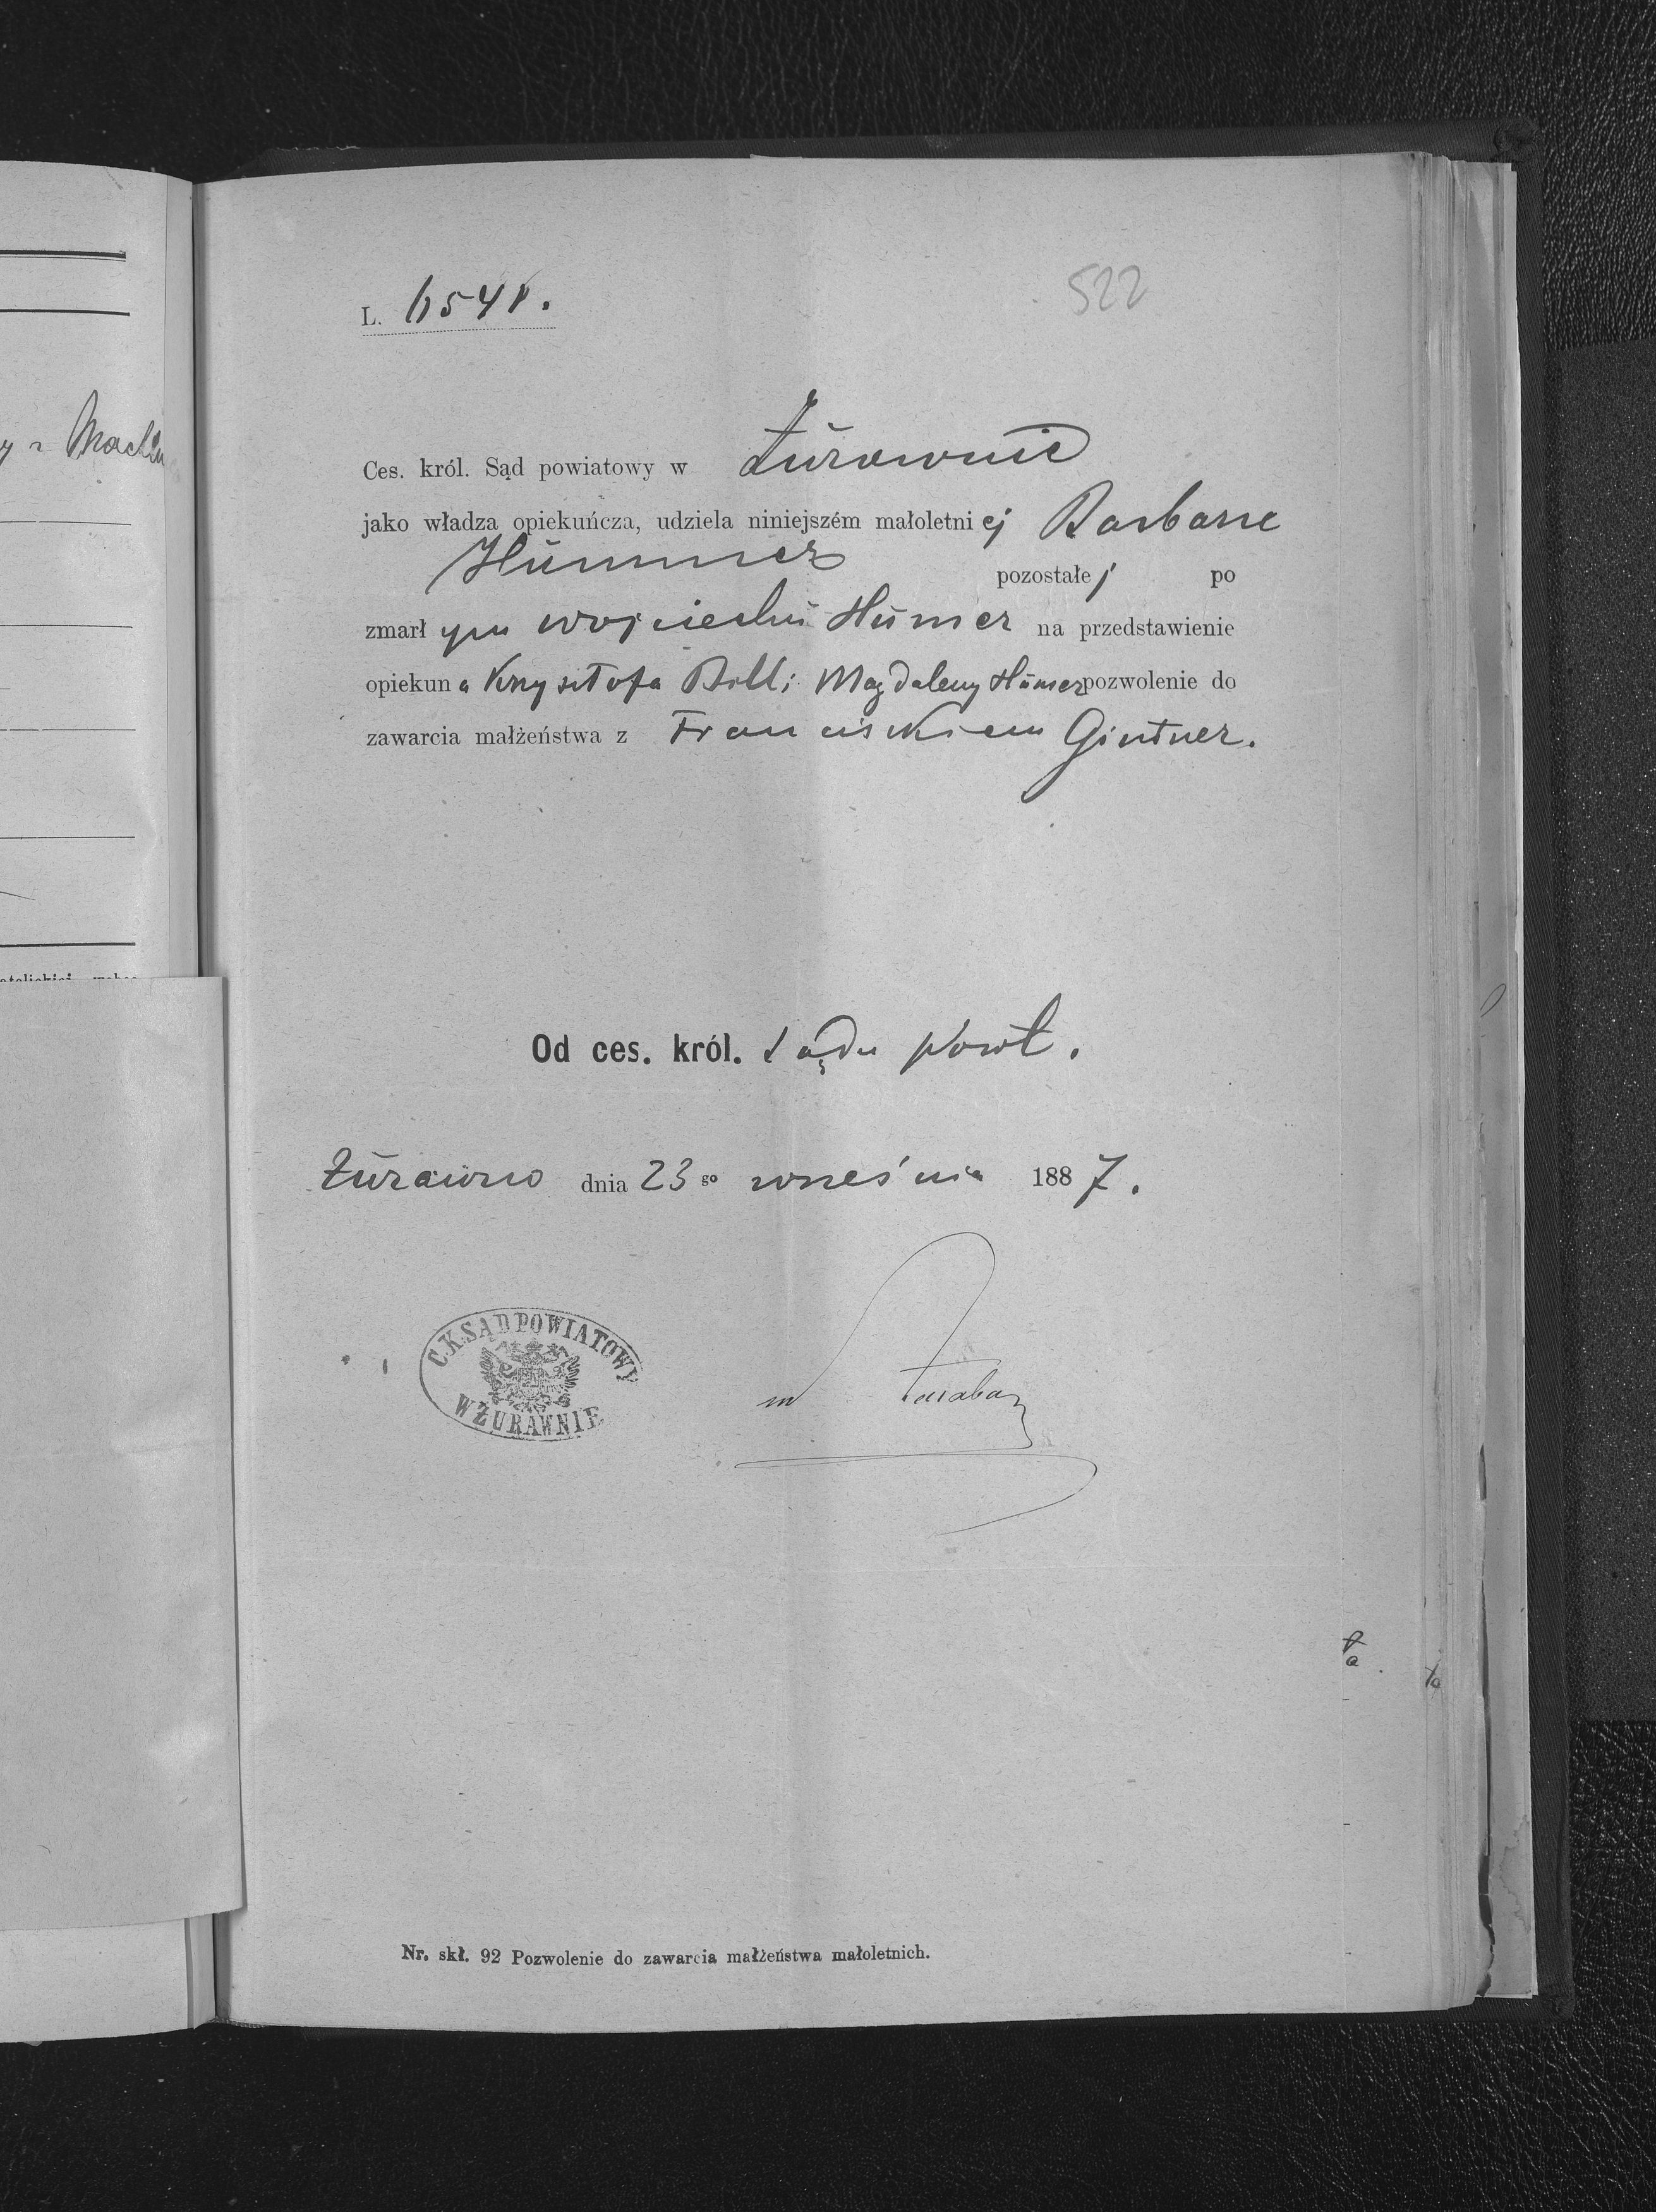 522
L. 6541.
Ces. król. Sąd powiatowy w Żurawnie
jako władza opiekuńcza, udziela niniejszém małoletniej Barbarze
Hümmer pozostałej po
zmarłym Wojciechu Hümer na przedstawienie
opiekuna Krzysztofa Bill i Magdaleny Hümer pozwolenie do
zawarcia małżeństwa z Franciszkiem Gintner.
Od ces. król. Sądu powt.
Żurawno dnia 23go września 1887.
C.K.SĄD POWIATOWY
W ŻURAWNIE
Nr. skł. 92 Pozwolenie do zawarcia małżeństwa małoletnich.